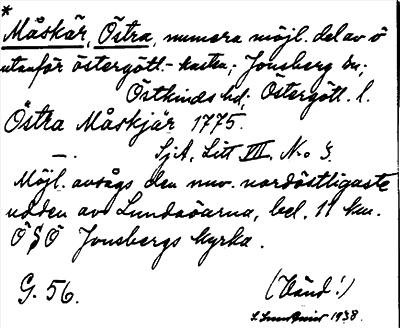 *
Måskär, Östra, numera möjl. del av ö
utanför östergötl.-kusten; Jonsberg sn;
Östkinds hd; Östergötl. l.
Östra Måskjär 1775.
—. SjA, Litt VII, No 3.
Möjl. avsågs den nuv. nordöstligaste
udden av Lundaöarna, bel. 11 km.
ÖSÖ Jonsbergs kyrka.
G. 56. (Vänd!)
1938.